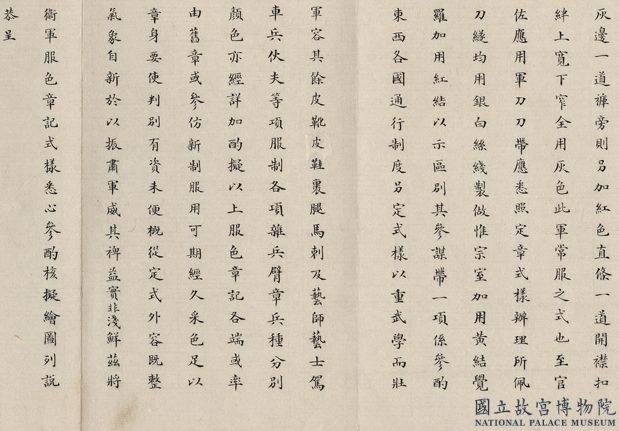 灰邊一道褲旁則另加紅色直條一道開襟扣
絆上寬下窄全用灰色此軍常服之式也至官
佐應用軍刀刀帶應悉照定章式樣辦理所佩
刀緌均用銀白絲綫製做惟宗室加用黃結覺
羅加用紅結以示區別其參謀帶一項係參酌
東西各國通行制度另定式樣以重武學而壯
軍容其餘皮靴皮鞋裹腿馬刺及藝師藝士駕
車兵伙夫等項服制各項雜兵臂章兵種分別
顏色亦經詳加酌擬以上服色章記各端或率
由舊章或參仿新制服用可期經久采色足以
章身要使判別有資未便概從定式外容既整
氣象自新於以振肅軍威其裨益實非淺鮮茲將
衛軍服色章記式樣悉心參酌核擬繪圖列說
恭呈
國立故宮博物院
NATIONAL PALACE MUSEUM